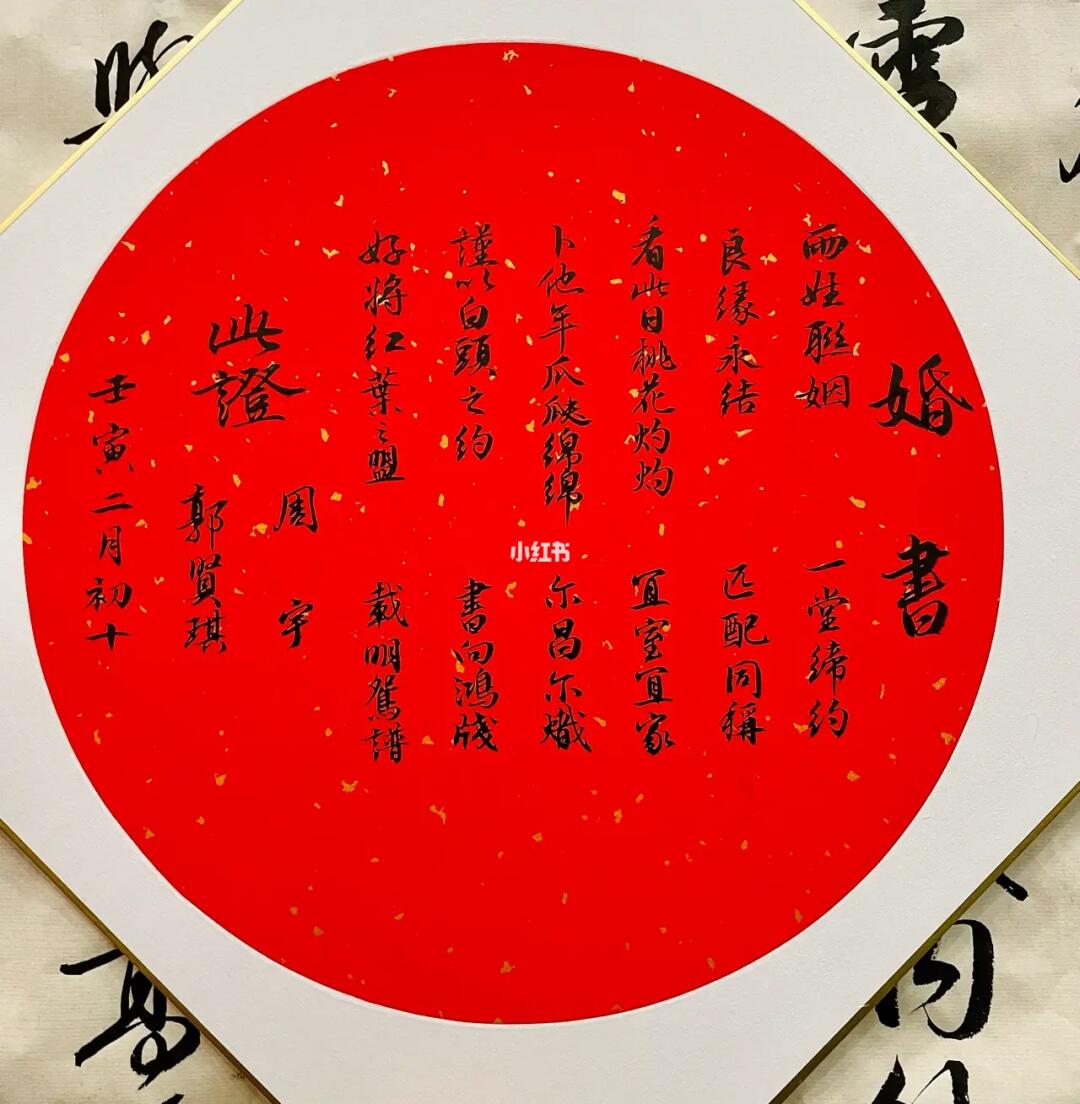 婚書
两姓聯姻 一堂締約
良緣永結 匹配同稱
看此日桃花灼灼 宜室宜家
卜他年瓜瓞綿綿 尔昌尔熾
謹以白頭之約 書向鴻牋
好將紅葉之盟 載明鴛譜
此證
周宇
郭賢琪
壬寅二月初十
小红书